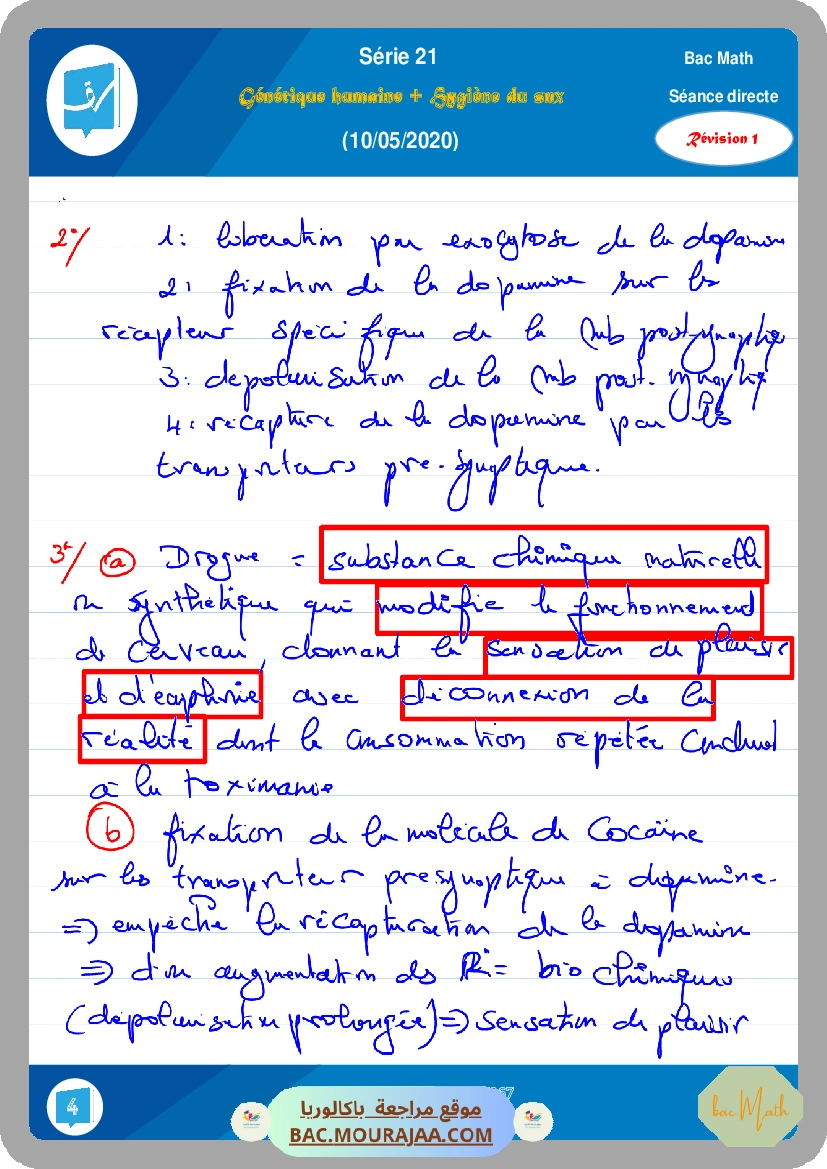 Série 21
Bac Math
Génétique humaine + Hygiène du snx
Séance directe
(10/05/2020)
Révision 1
2°/ 1: libération par exocytose de la dopamine
2: fixation de la dopamine sur les
récepteur spécifique de la mb post-synaptiq
3: depolarisation de la mb post-synaptiq
4: recapture de la dopamine par les
transpteurs pre-synaptique.
3°/ a Drogue = substance chimique naturelle
ou synthétique qui modifie le fonctionnement
de cerveau, donnant la sensation de plaisir
et d'euphorie avec déconnexion de la
réalité dont la consommation répétée conduit
à la toximanie
b fixation de la molécule de Cocaïne
sur les transpteur presynaptique à dopamine.
=> empêche la récapturation de la dopamine
=> d'où augmentation des bio chimiques
(depolarisation prolongée) => sensation de plaisir
4
موقع مراجعة باكالوريا
BAC.MOURAJAA.COM
bac Math